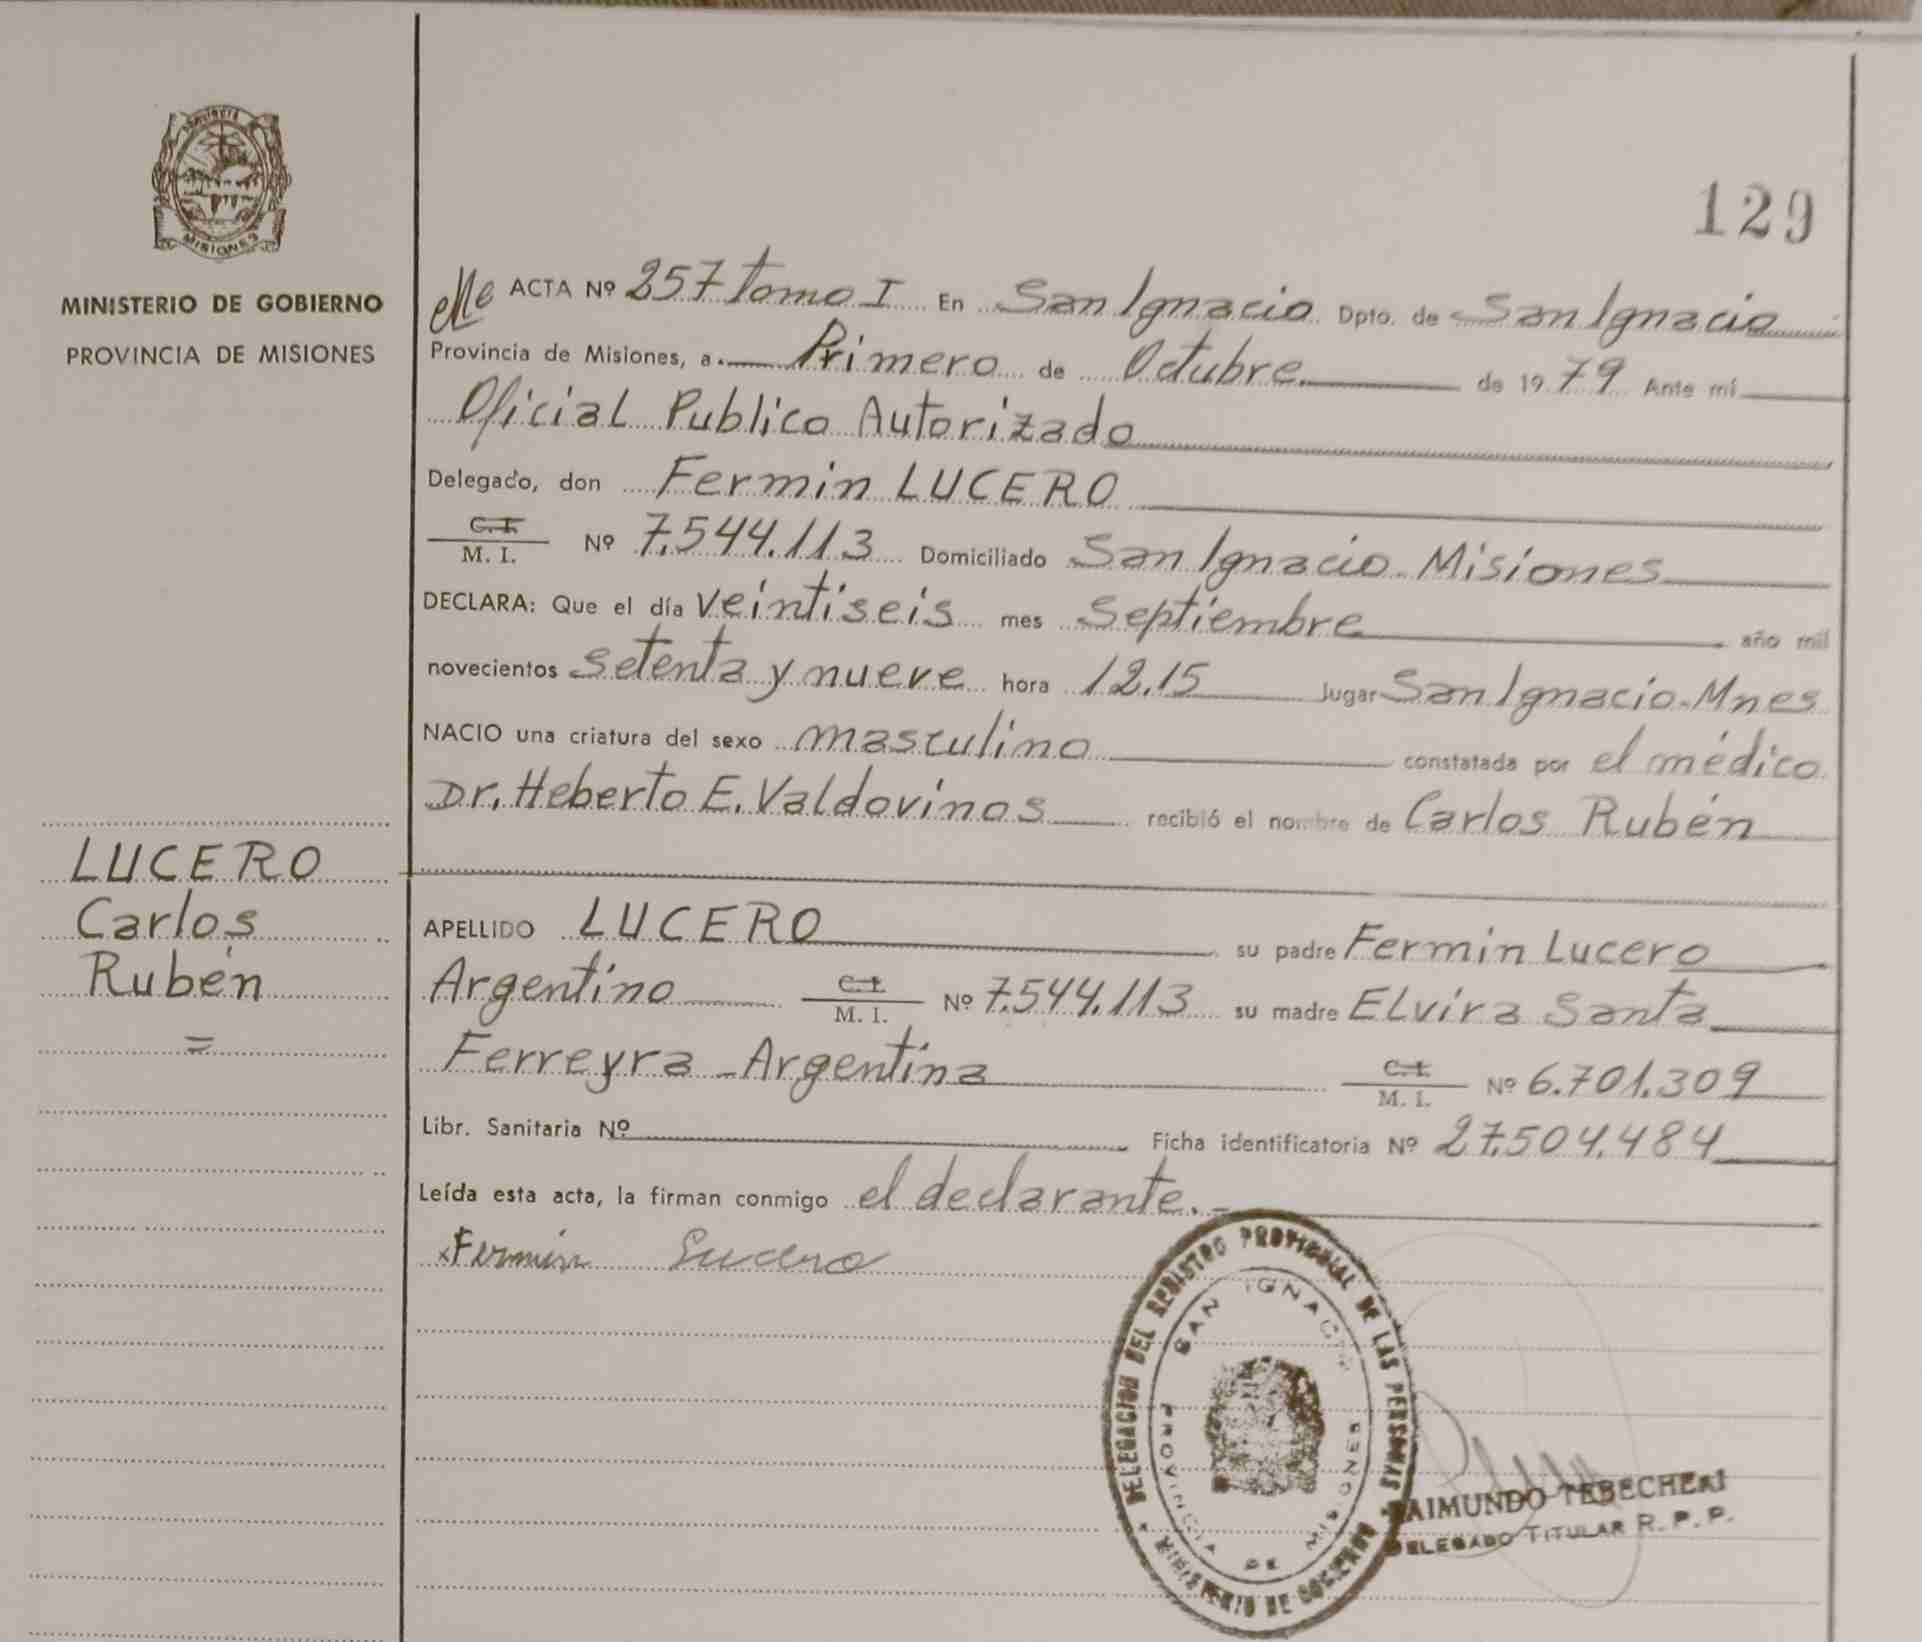 MISIONES
MINISTERIO DE GOBIERNO
PROVINCIA DE MISIONES
LUCERO
Carlos
Rubén
=
129
ACTA Nº 257 Tomo I En San Ignacio Dpto. de San Ignacio
Provincia de Misiones, a Primero de Octubre de 1979 Ante mí
Oficial Publico Autorizado
Delegado, don Fermin LUCERO
C.I. / M. I. Nº 7.544.113 Domiciliado San Ignacio. Misiones
DECLARA: Que el día veintiseis mes Septiembre año mil
novecientos setenta y nueve hora 12.15 lugar San Ignacio-Mnes
NACIO una criatura del sexo masculino constatada por el médico
Dr. Heberto E. Valdovinos recibió el nombre de Carlos Rubén
APELLIDO LUCERO su padre Fermin Lucero
Argentino C.I. / M. I. Nº 7.544.113 su madre Elvira Santa
Ferreyra - Argentina C.I. / M. I. Nº 6.701.309
Libr. Sanitaria Nº Ficha identificatoria Nº 27.504.484
Leída esta acta, la firman conmigo el declarante. -
x Fermin Lucero
DELEGACION DEL REGISTRO PROVINCIAL DE LAS PERSONAS
SAN IGNACIO
PROVINCIA DE MISIONES
MINISTERIO DE GOBIERNO
RAIMUNDO TEBECHERI
DELEGADO TITULAR R. P. P.